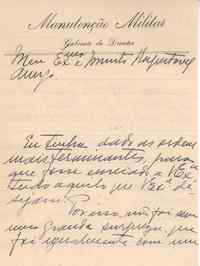 Manutenção Militar
Gabinete do Director
Meu Exmo e muito Respeitavel
Amigo
Eu tenho dado as ordens
mais terminantes, para
que fosse enviado a V. Exª
tudo aquilo que V. Exª de-
sejar.
Por isso, não foi sem
uma grande surpresa, que
foi igualmente com um